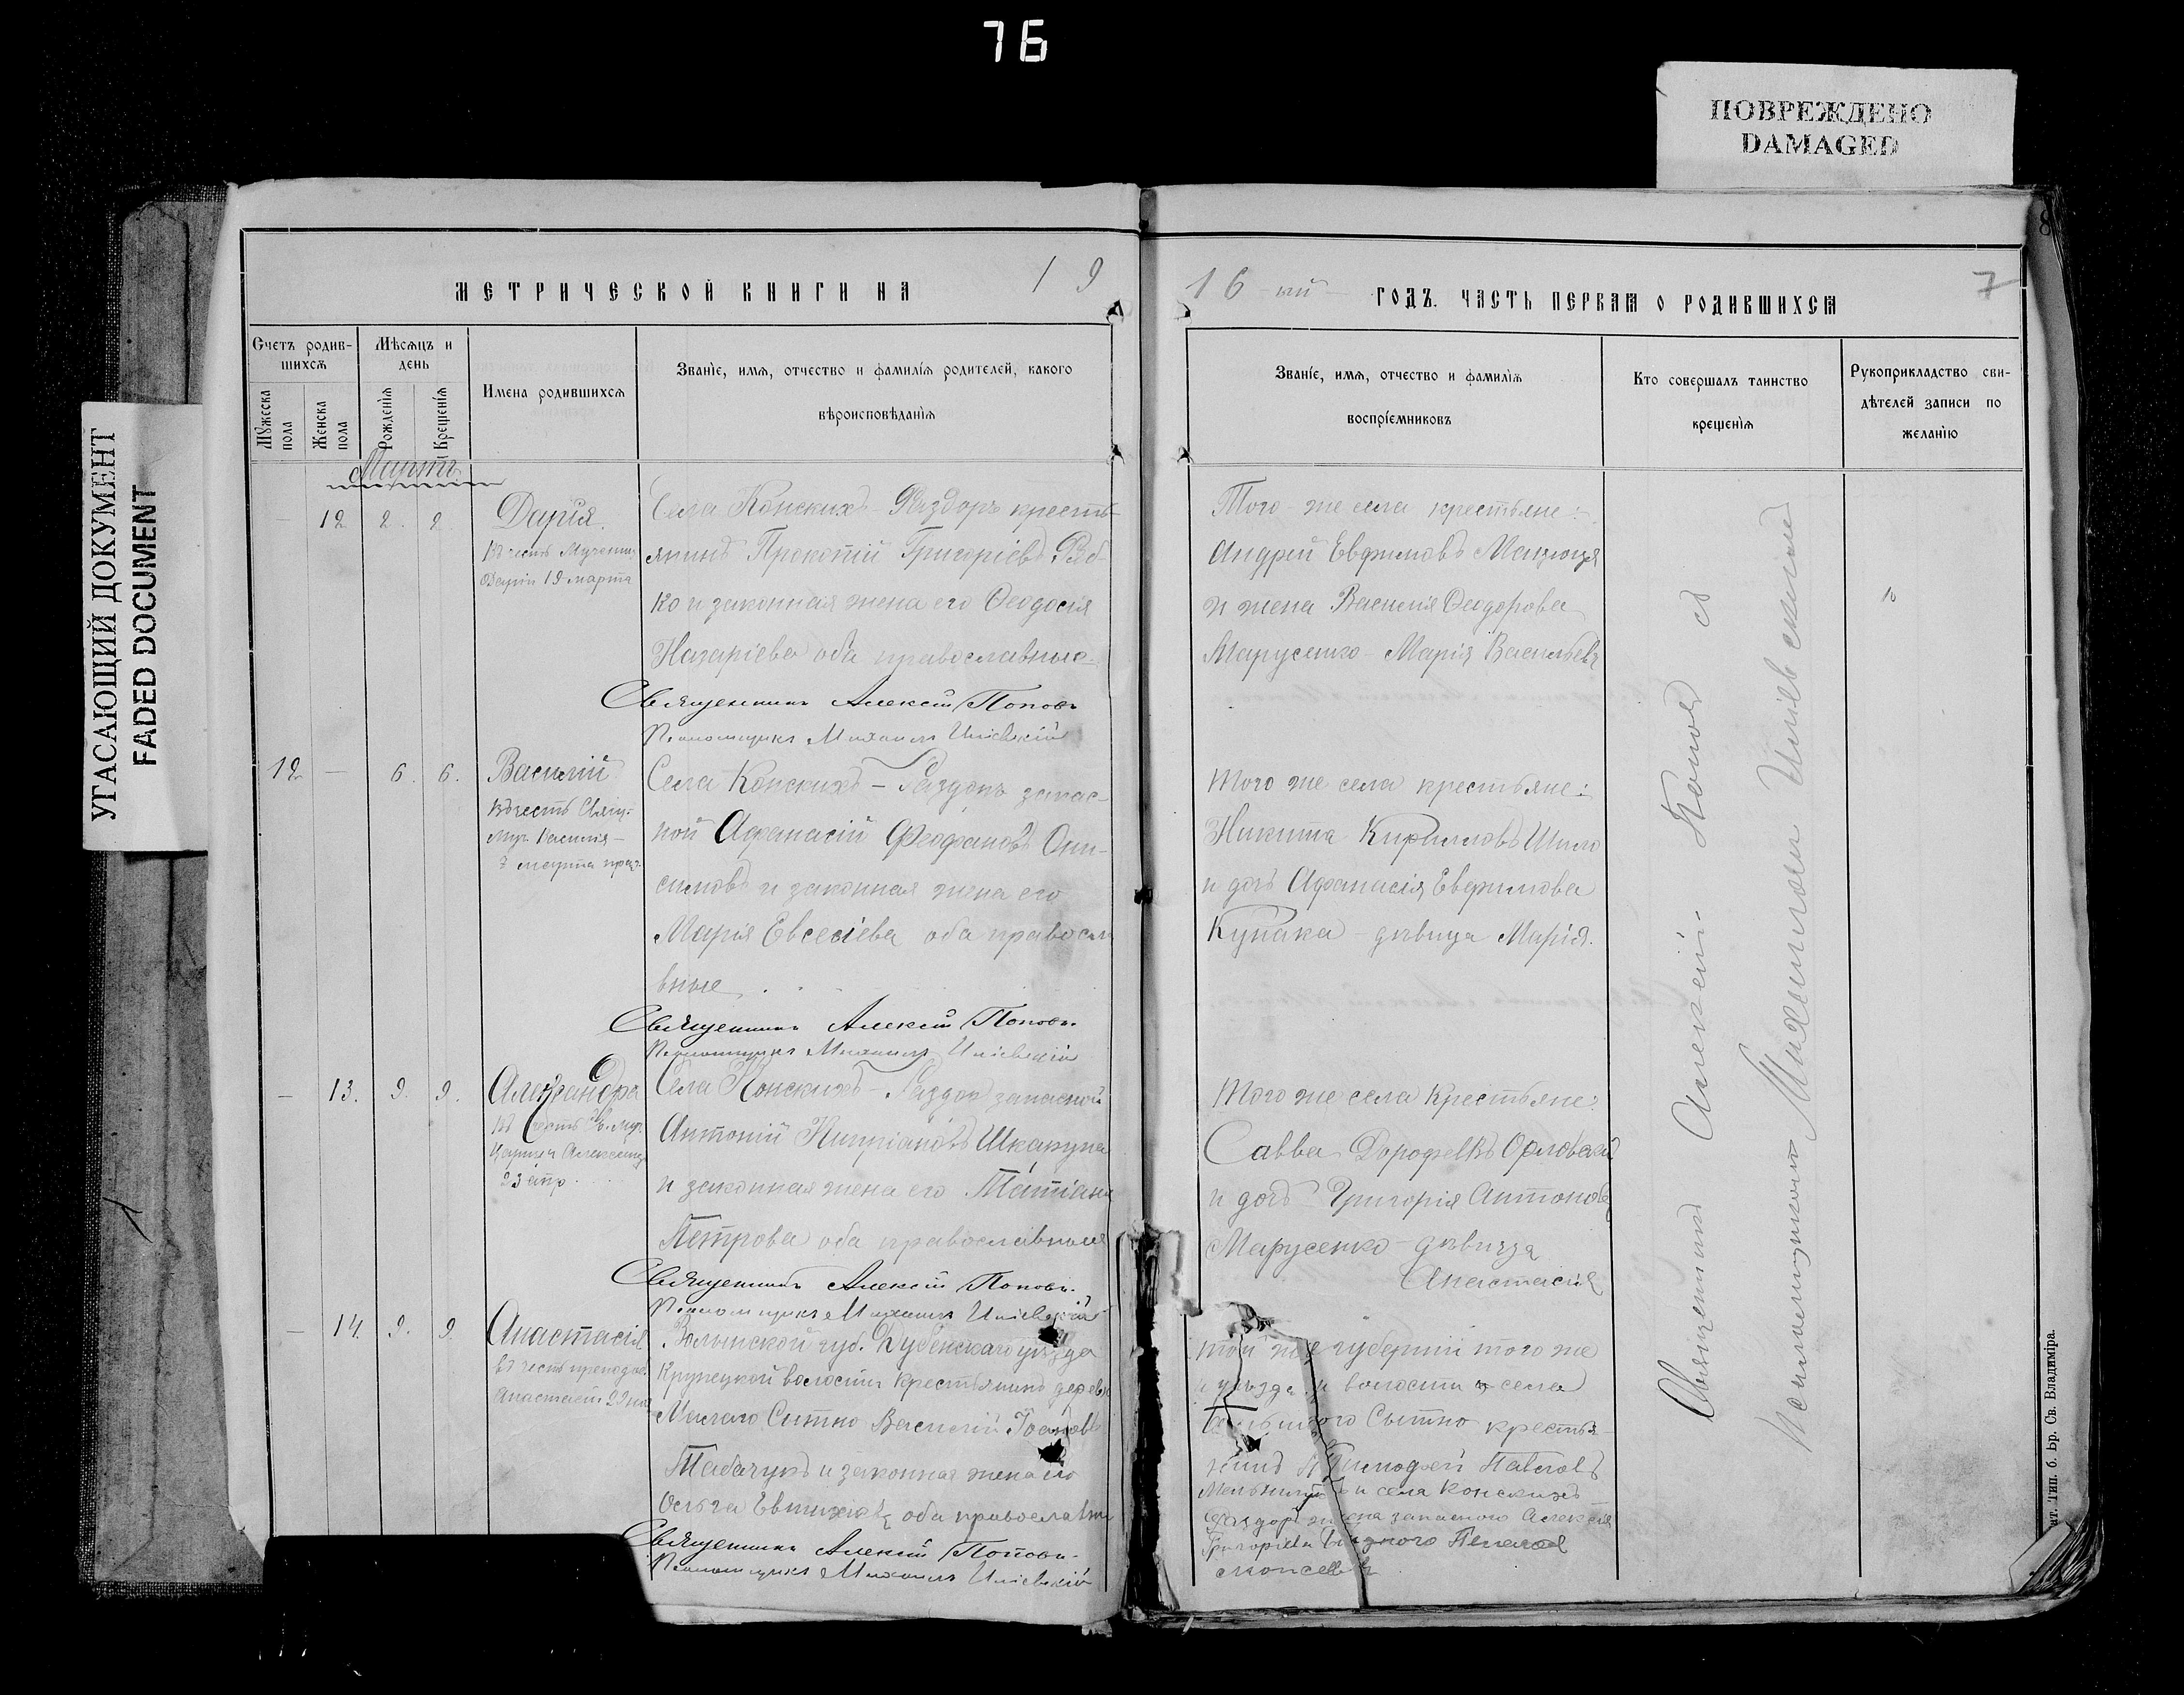 76
ПОВРЕЖДЕНО
DAMAGED
УГАСАЮЩИЙ ДОКУМЕНТ
FADED DOCUMENT
8
7
МЕТРИЧЕСКОЙ КНИГИ НА 19
16 ый ГОДЪ. ЧАСТЬ ПЕРВАЯ О РОДИВШИХСЯ
Счетъ родив-
шихся
Мужеска
пола
Женска
пола
Мѣсяцъ и
день
Рожденія
Крещенія
Имена родившихся
Званіе, имя, отчество и фамилія родителей, какого
вѣроисповѣданія
Званіе, имя, отчество и фамилія
воспріемниковъ
Кто совершалъ таинство
крещенія
Рукоприкладство сви-
дѣтелей записи по
желанію
Мартъ
— 12 2. 2.
Дарія.
Въ честь Мучениц.
Даріи 19 марта
Села Конскихъ-Раздоръ кресть-
янинъ Прокопій Григоріевъ Ряб-
ко и законная жена его Ѳеодосія
Назаріева оба православные
Священникъ Алексій Поповъ
Псаломщикъ Михаилъ
Того-же села крестьяне:
Андрей Евфимовъ
и жена Василія Ѳеодорова
Марусенко Марія Васильева
12 — 6. 6.
Василій
Въ честь Свящ.
муч. Василія
7 марта
Села Конскихъ-Раздоръ запас-
ной Афанасій Феофановъ Они-
симовъ и законная жена его
Марія Евсевіева оба правосла
вные
Священникъ Алексій Поповъ.
Псаломщикъ Михаилъ
Того же села крестьяне:
Никита Кирилловъ Шило
и дочь Афанасія Евфимова
дѣвица Марія.
— 13. 9. 9.
Александра
Въ честь Св. муч.
Царицы Александр.
23 апр.
Села Конскихъ-Раздоръ запасной
Антоній Кипріановъ Шкарупа
и законная жена его Татіана
Петрова оба православные
Священникъ Алексій Поповъ.
Псаломщикъ Михаилъ
Того же села крестьяне:
Савва Дорофеевъ Орловскій
и дочь Григорія Антонова
Марусенко-дѣвица
Анастасія
— 14. 9. 9.
Анастасія
въ честь преподоб.
Анастасіи
Волынской губ. Дубенскаго уѣзда
Крупецкой волости крестьянинъ дерев.
Малаго Сытно Василій Іоановъ
Табачукъ и законная жена его
Ольга оба православные
Священникъ Алексій Поповъ.
Псаломщикъ Михаилъ
той же губерніи того же
уѣзда и волости села
Большого Сытно крестья-
нинъ Тимофей Павловъ
Мельникъ и села Конскихъ
Раздоръ жена запасного Алексія
Григоріева Пелагея
Священникъ Алексій Поповъ съ
Псаломщикомъ Михаиломъ